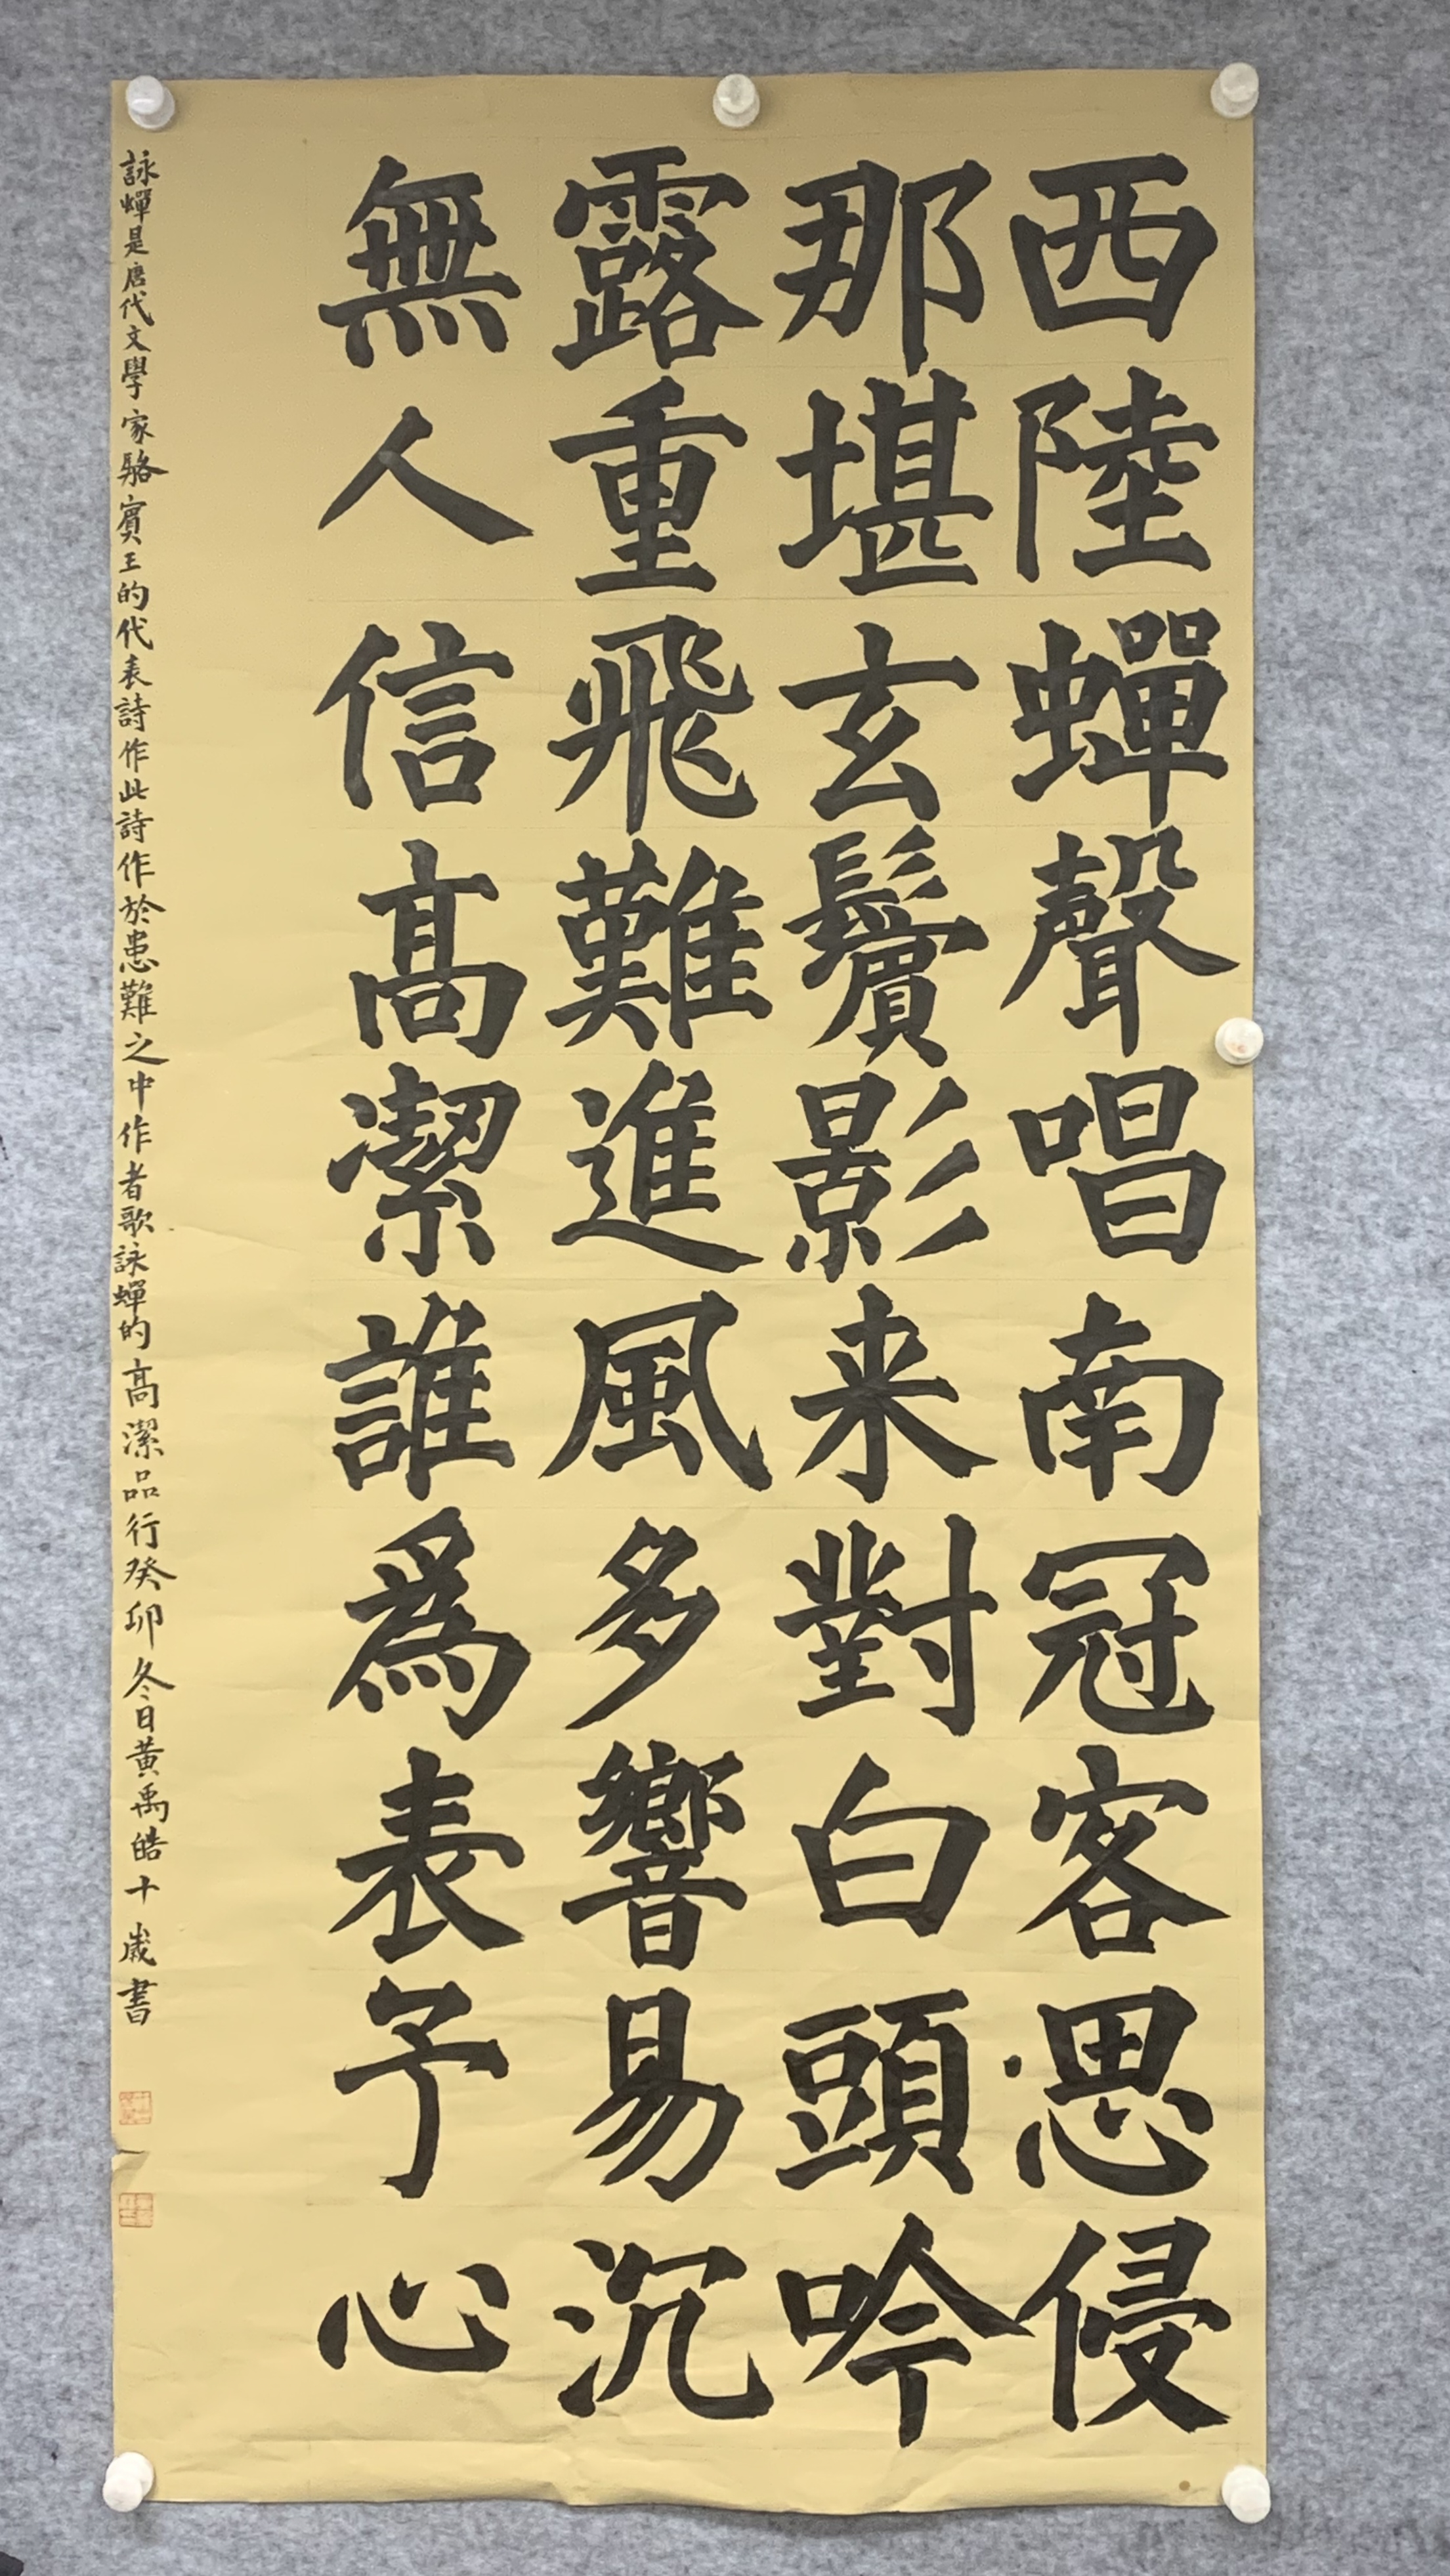 西陸蟬聲唱南冠客思侵
那堪玄鬢影来對白頭吟
露重飛難進風多響易沉
無人信高潔誰爲表予心
詠蟬是唐代文學家駱賓王的代表詩作此詩作於患難之中作者歌詠蟬的高潔品行癸卯冬日黃禹皓十歲書